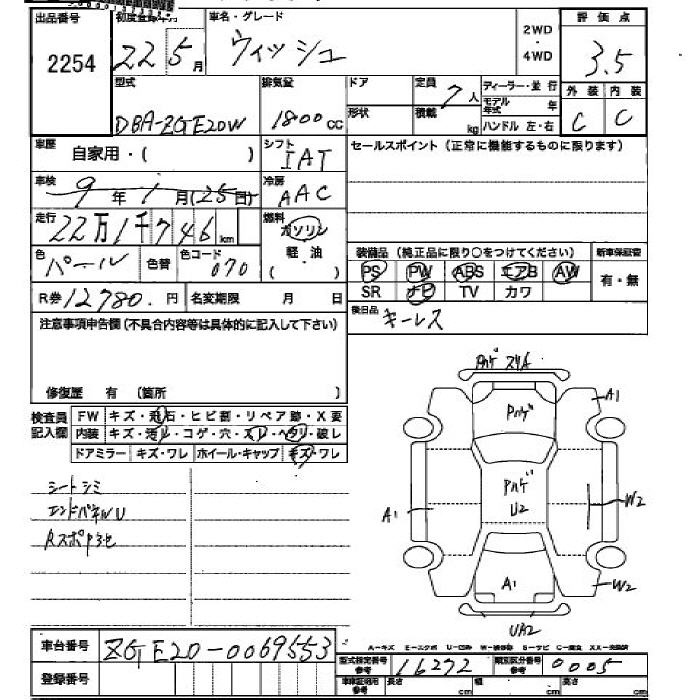 出品番号 車名・グレード 2WD 評価点
2254 22年5月 ウィッシュ ・ 3.5
4WD
型式 排気量 ドア 定員 7人 ディーラー・並行 外装 内装
モデル年式 年
DBA-ZGE20W 1800cc 形状 積載 kg ハンドル 左・右 C C
車歴 自家用・( ) シフト IAT セールスポイント(正常に機能するものに限ります)
車検 9年1月(25日) 冷房 AAC
走行 22万1千746km 燃料 ガソリン
軽・油
( )
色 パール 色替 色コード 070 装備品(純正品に限り○をつけてください) 新車保証書
PS PW ABS エアB AW 有・無
R券 12780.円 名変期限 月 日 SR ナビ TV カワ
注意事項申告欄(不具合内容等は具体的に記入して下さい) 後日品 キーレス
修復歴 有 (箇所 )
検査員記入欄 FW キズ・飛石・ヒビ割・リペア跡・X要
内装 キズ・汚レ・コゲ・穴・スレ・ヘタリ・破レ
ドアミラー キズ・ワレ ホイール・キャップ キズ・ワレ
シートシミ
エンドパネルU
Pハゲ
A1
Pハゲ
Pハゲ
U2
A1 W2
A1 W2
UA2
車台番号 ZGE20-0069553
登録番号
型式指定番号 参考 16272 類別区分番号 参考 0005
長さ cm 幅 cm 高さ cm